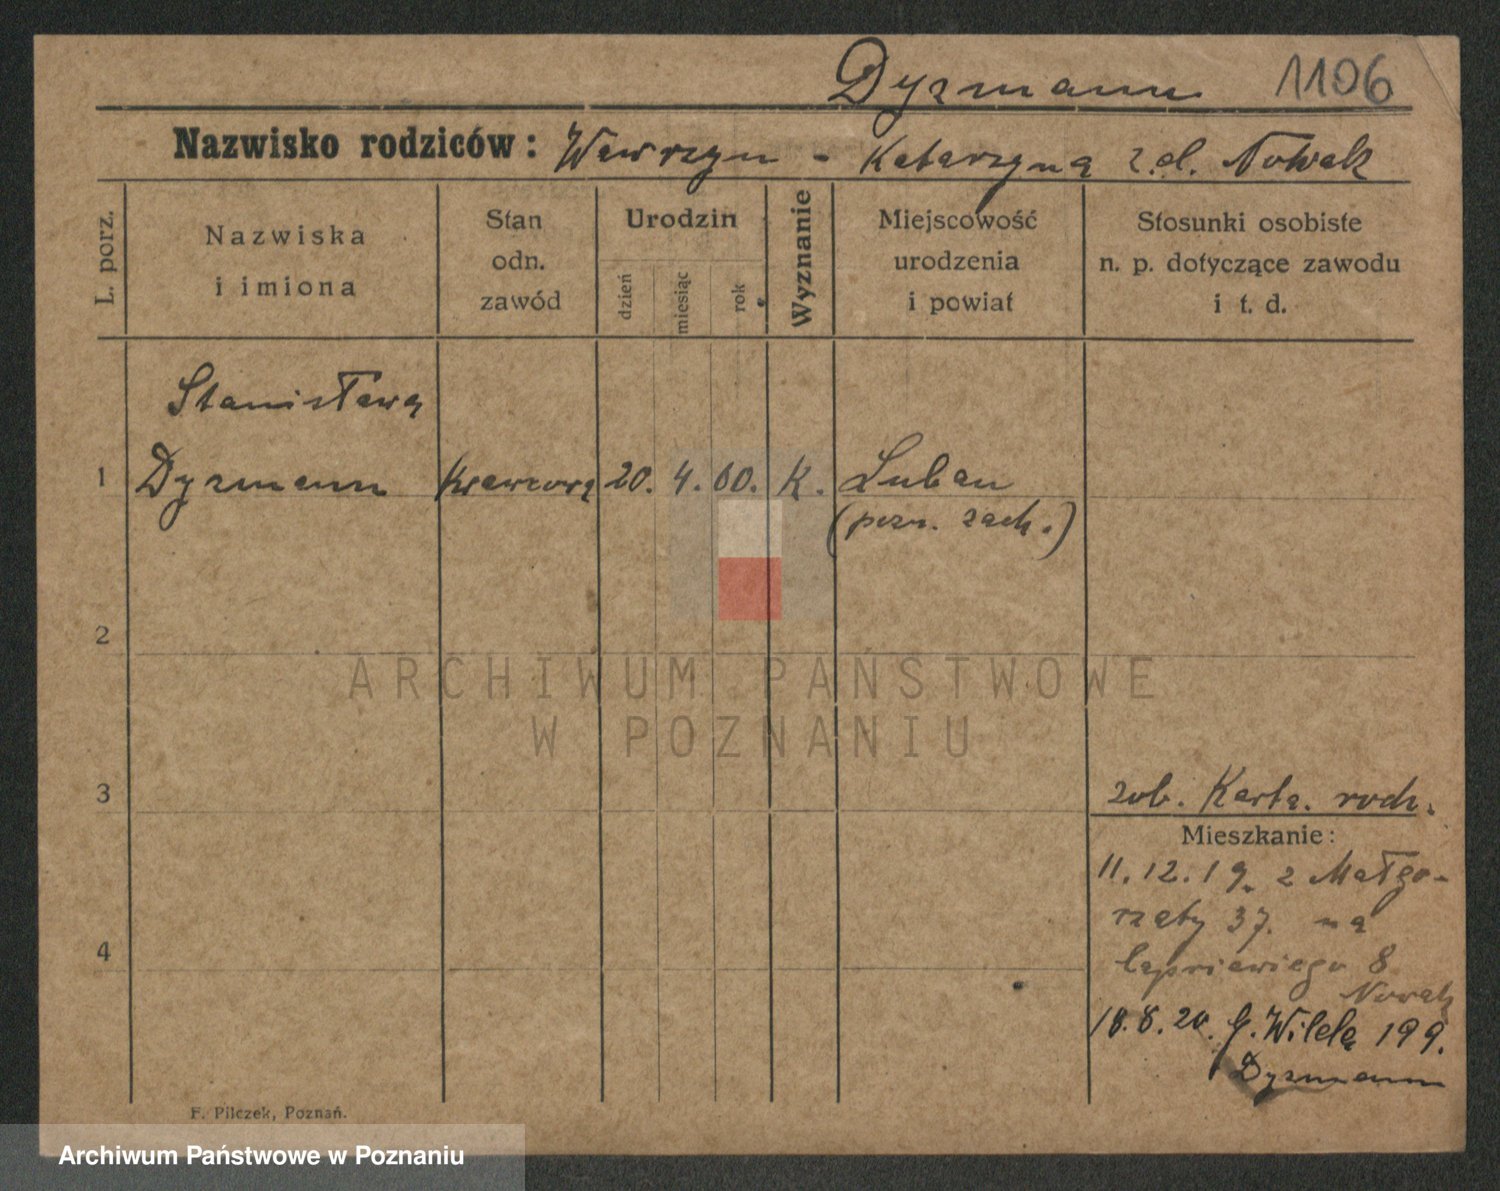 Dyzmann 1106
Nazwisko rodziców: Wawrzyn - Katarzyna z.d. Nowak
L. porz.
Nazwiska
i imiona
Stan
odn.
zawód
Urodzin
dzień
miesiąc
rok
Wyznanie
Miejscowość
urodzenia
i powiat
Stosunki osobiste
n. p. dotyczące zawodu
i t. d.
Stanisława
1 Dyzmann Krawcowa 20. 4. 00. K. Luban
(pozn. zach.)
2
ARCHIWUM PAŃSTWOWE
W POZNANIU
3
zob. Karta. rodz.
Mieszkanie:
11.12.19. z Małgo-
rzaty 37. na
4
8
Nowak
18.8.20. G. Wilda 199.
Dyzmann
F. Pilczek, Poznań.
Archiwum Państwowe w Poznaniu